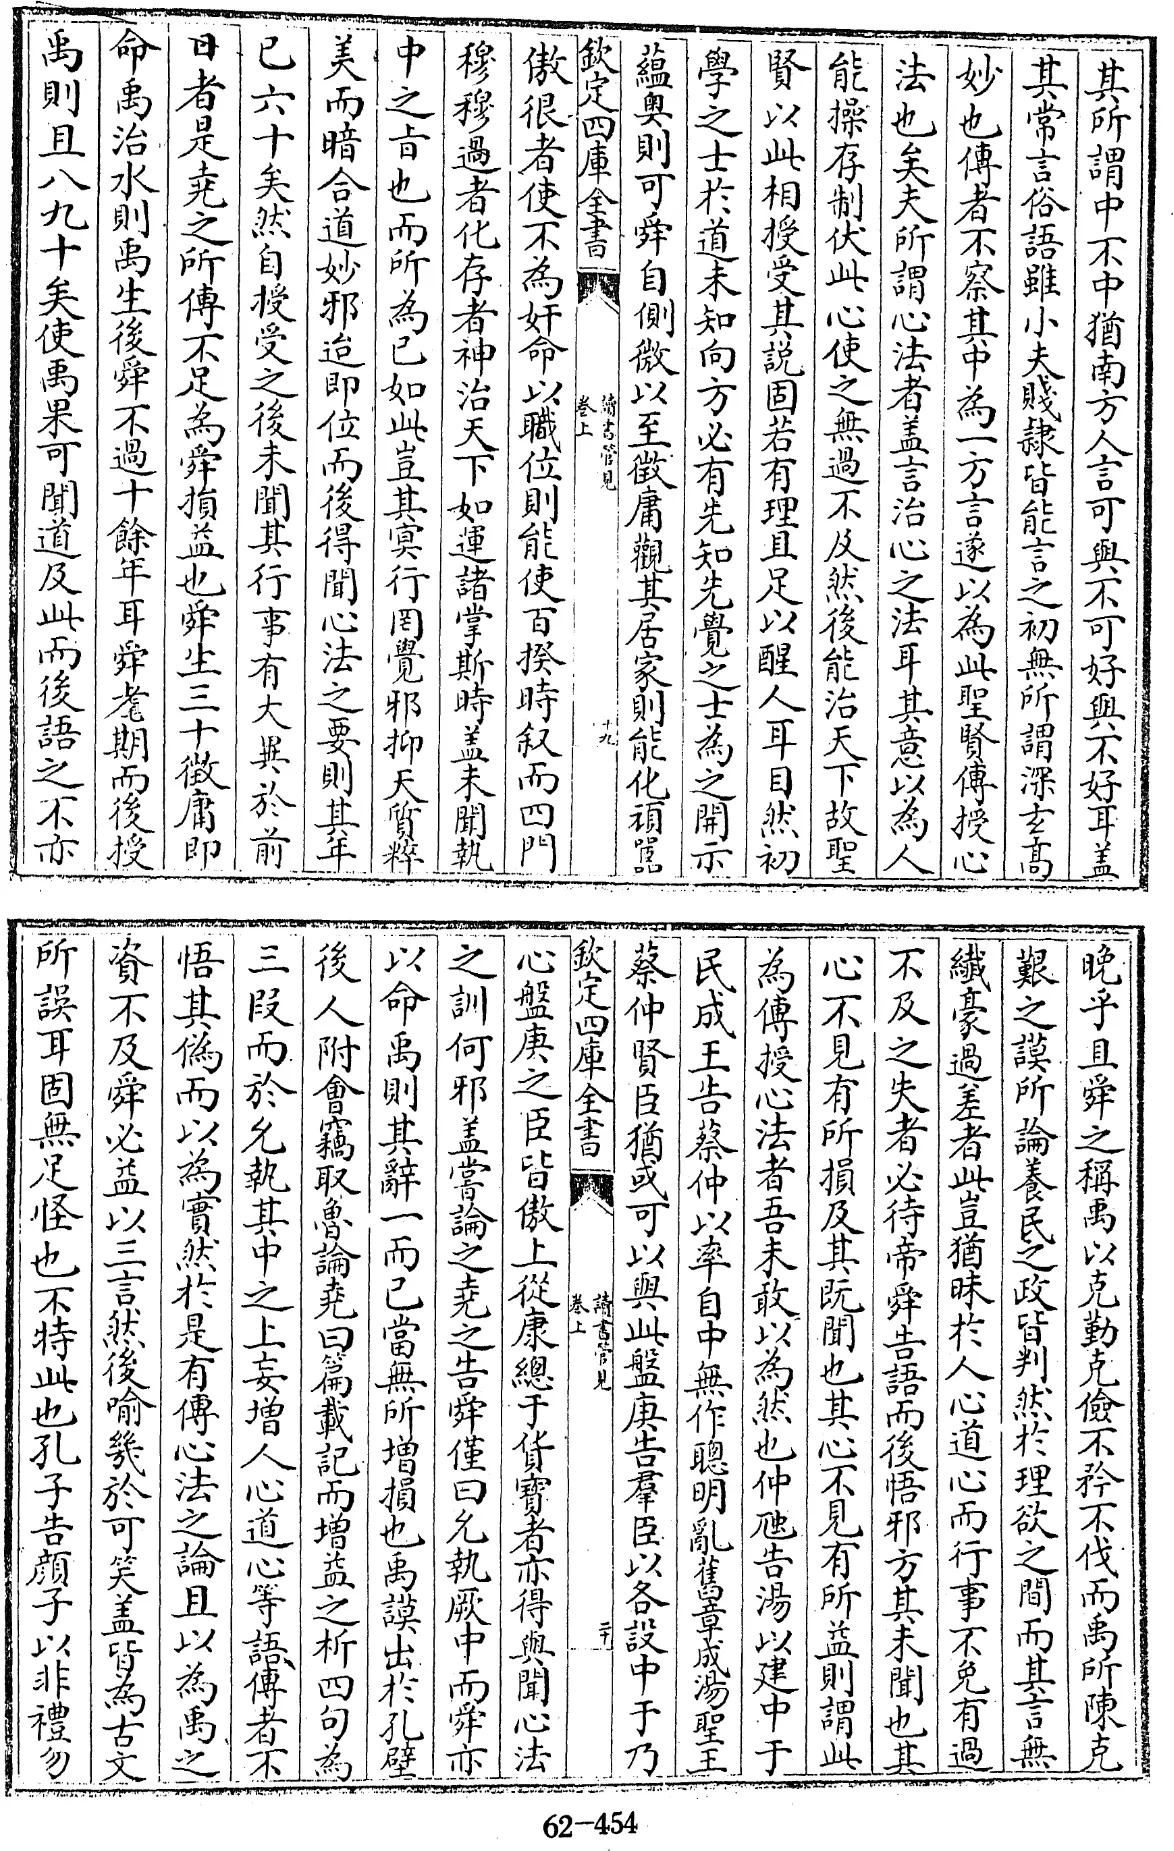 其所謂中不中猶南方人言可與不可好與不好耳盖
其常言俗語雖小夫賤隷皆能言之初無所謂深玄髙
妙也傳者不察其中為一方言遂以為此聖賢傳授心
法也矣夫所謂心法者盖言治心之法耳其意以為人
能操存制伏此心使之無過不及然後能治天下故聖
賢以此相授受其説固若有理且足以醒人耳目然初
學之士於道未知向方必有先知先覺之士為之開示
蘊奥則可舜自側微以至徴庸觀其居家則能化頑嚚
欽定四庫全書
讀書管見
卷上
十九
傲很者使不為奸命以職位則能使百揆時叙而四門
穆穆過者化存者神治天下如運諸掌斯時盖未聞執
中之㫖也而所為已如此豈其冥行罔覺邪抑天質粹
美而暗合道妙邪迨即位而後得聞心法之要則其年
已六十矣然自授受之後未聞其行事有大異於前
日者是堯之所傳不足為舜損益也舜生三十徴庸即
命禹治水則禹生後舜不過十餘年耳舜耄期而後授
禹則且八九十矣使禹果可聞道及此而後語之不亦
晩乎且舜之稱禹以克勤克儉不矜不伐而禹所陳克
艱之謨所論養民之政皆判然於理欲之間而其言無
纎毫過差者此豈猶昧於人心道心而行事不免有過
不及之失者必待帝舜告語而後悟邪方其未聞也其
心不見有所損及其既聞也其心不見有所益則謂此
為傳授心法者吾未敢以為然也仲虺告湯以建中于
民成王告蔡仲以率自中無作聰明亂舊章成湯聖王
蔡仲賢臣猶或可以與此盤庚告羣臣以各設中于乃
欽定四庫全書
讀書管見
卷上
二十
心盤庚之臣皆傲上從康總于貨寳者亦得與聞心法
之訓何邪盖嘗論之堯之告舜僅曰允執厥中而舜亦
以命禹則其辭一而已當無所増損也禹謨出於孔壁
後人附㑹竊取魯論堯曰篇載記而増益之析四句為
三叚而於允執其中之上妄増人心道心等語傳者不
悟其偽而以為實然於是有傳心法之論且以為禹之
資不及舜必益以三言然後喻幾於可笑盖皆為古文
所誤耳固無足怪也不特此也孔子告顔子以非禮勿
62-454